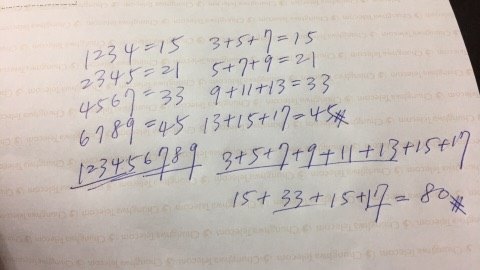 1234=15 3+5+7=15
2345=21 5+7+9=21
4567=33 9+11+13=33
6789=45 13+15+17=45
123456789 3+5+7+9+11+13+15+17
15+33+15+17=80